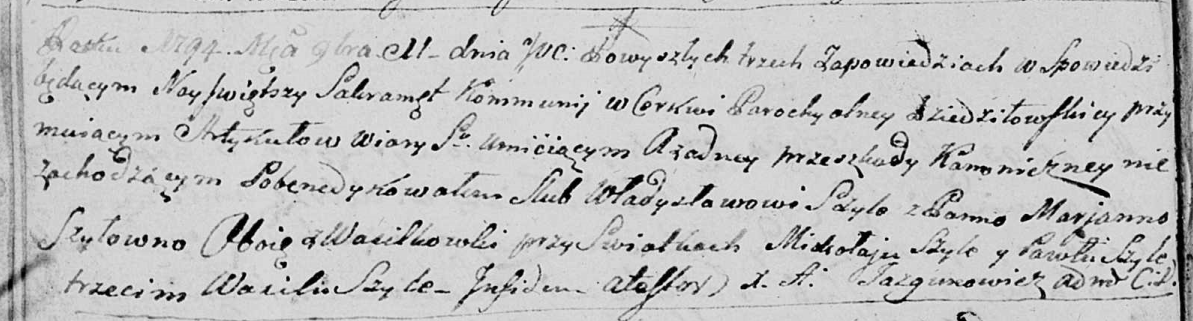 Roku 1794. Mca 9bra 11 dnia WC. Powyszłych trzech Zapowiedziach w Spowiedzi
będącym Nayświętszy Sakrament Kommunij w Cerkwi Parochyalney Dziedziłowskiey przy
muiącym Artykułow Wiary St. umiejącym Rządney przeszkody Kanoniczney nie
Zachodzącym Pobenedykowałem Slub Władysławowi Szyle z Panno Marjanno
Szyłowno Oboię z Wasilkowki przy Swiatkach Mikołaju Szyle y Pawłu Szyle
trzecim Wasilu Szyle - In fidem attestor X. A. Jazgunowicz adm C. D.